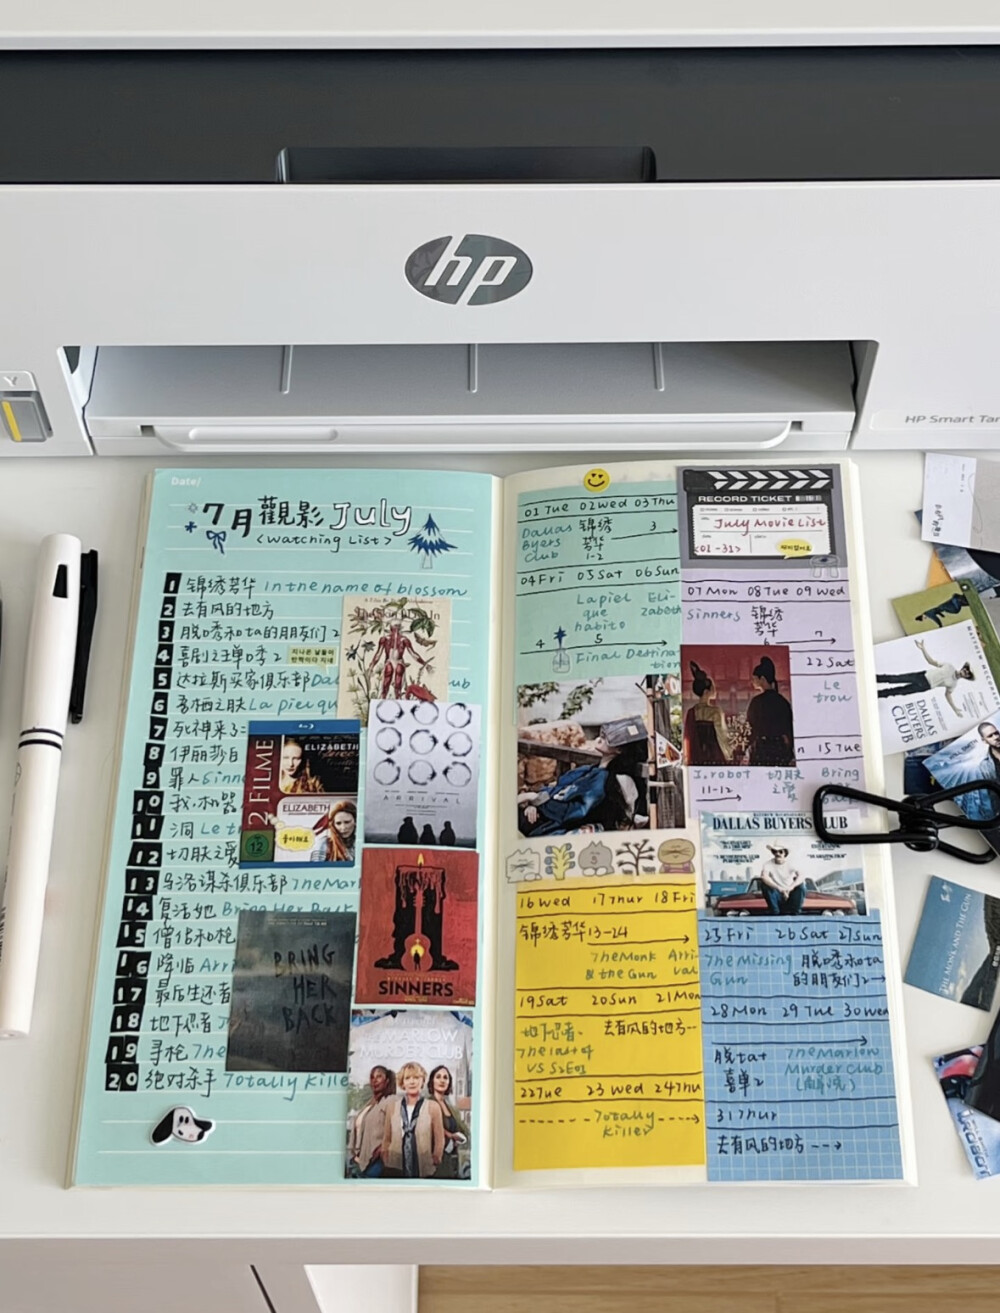 hp
HP Smart Tan
Y
Date/
7月觀影 July
<Watching List>
1 锦绣芳华 In the name of blossom
2 去有风的地方
3 脱口秀和ta的朋友们2
4 喜剧之王单口季2
5 达拉斯买家俱乐部Dal
ub
6 吾栖之肤 La piel qu
7 死神来了
8 伊丽莎白
9 罪人Sinne
10 我,机器
11 洞 Le t
12 切肤之爱
13 马洛谋杀俱乐部 The Mar
14 复活她 Bring Her Back
15 僧侣和枪
16 降临 Arri
17 最后生还者
18 地下忍者
19 寻枪 The
20 绝对杀手 Totally Kille
2 FILME
ELIZABETH
ELIZABETH
12
ARRIVAL
BRING
HER
BACK
SINNERS
MARLOW
MURDER CLUB
01 Tue 02 Wed 03 Thu
Dallas
Byers
Club
锦绣
芳华
1-2
3
04 Fri 05 Sat 06 Sun
La piel
que
habito
Eli-
zabeth
4
5
Final Destina-
tion
RECORD TICKET
July Movie List
<01-31>
07 Mon 08 Tue 09 Wed
Sinners
锦绣
芳华
6
7
22 Sat
Le
trou
15 Tue
I, robot
11-12
切肤
之爱
Bring
DALLAS BUYERS CLUB
16 Wed 17 Thur 18 Fri
锦绣芳华13-24
The Monk
& the Gun
Arri-
val
19 Sat 20 Sun 21 Mon
地下忍者、
The last of
us S2E01
去有风的地方--
22 Tue 23 Wed 24 Thu
Totally
Killer
25 Fri 26 Sat 27 Sun
The Missing
Gun
脱口秀和ta
的朋友们2
28 Mon 29 Tue 30 Wed
脱ta+
喜单2
The Marlow
Murder Club
(解说)
31 Thur
去有风的地方
DALLAS
BUYERS
CLUB
THE MONK AND THE GUN